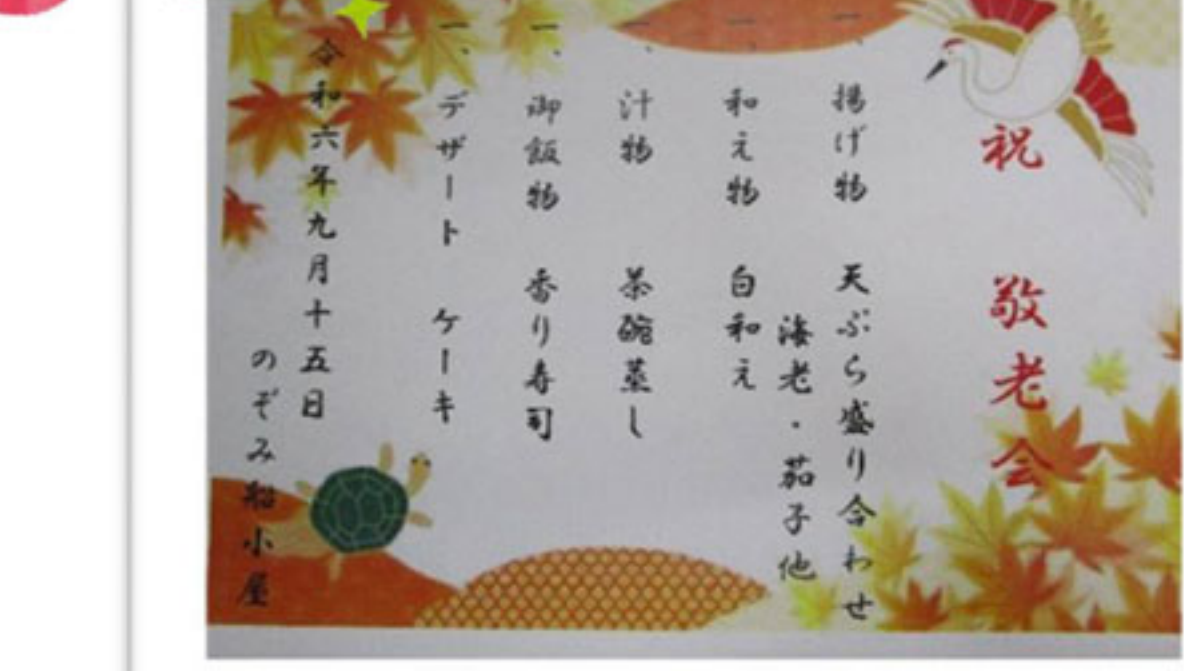 祝 敬老会
一、揚げ物 天ぷら盛り合わせ
海老・茄子他
一、和え物 白和え
一、汁物 茶碗蒸し
一、御飯物 香り寿司
一、デザート ケーキ
令和六年九月十五日
のぞみ船小屋